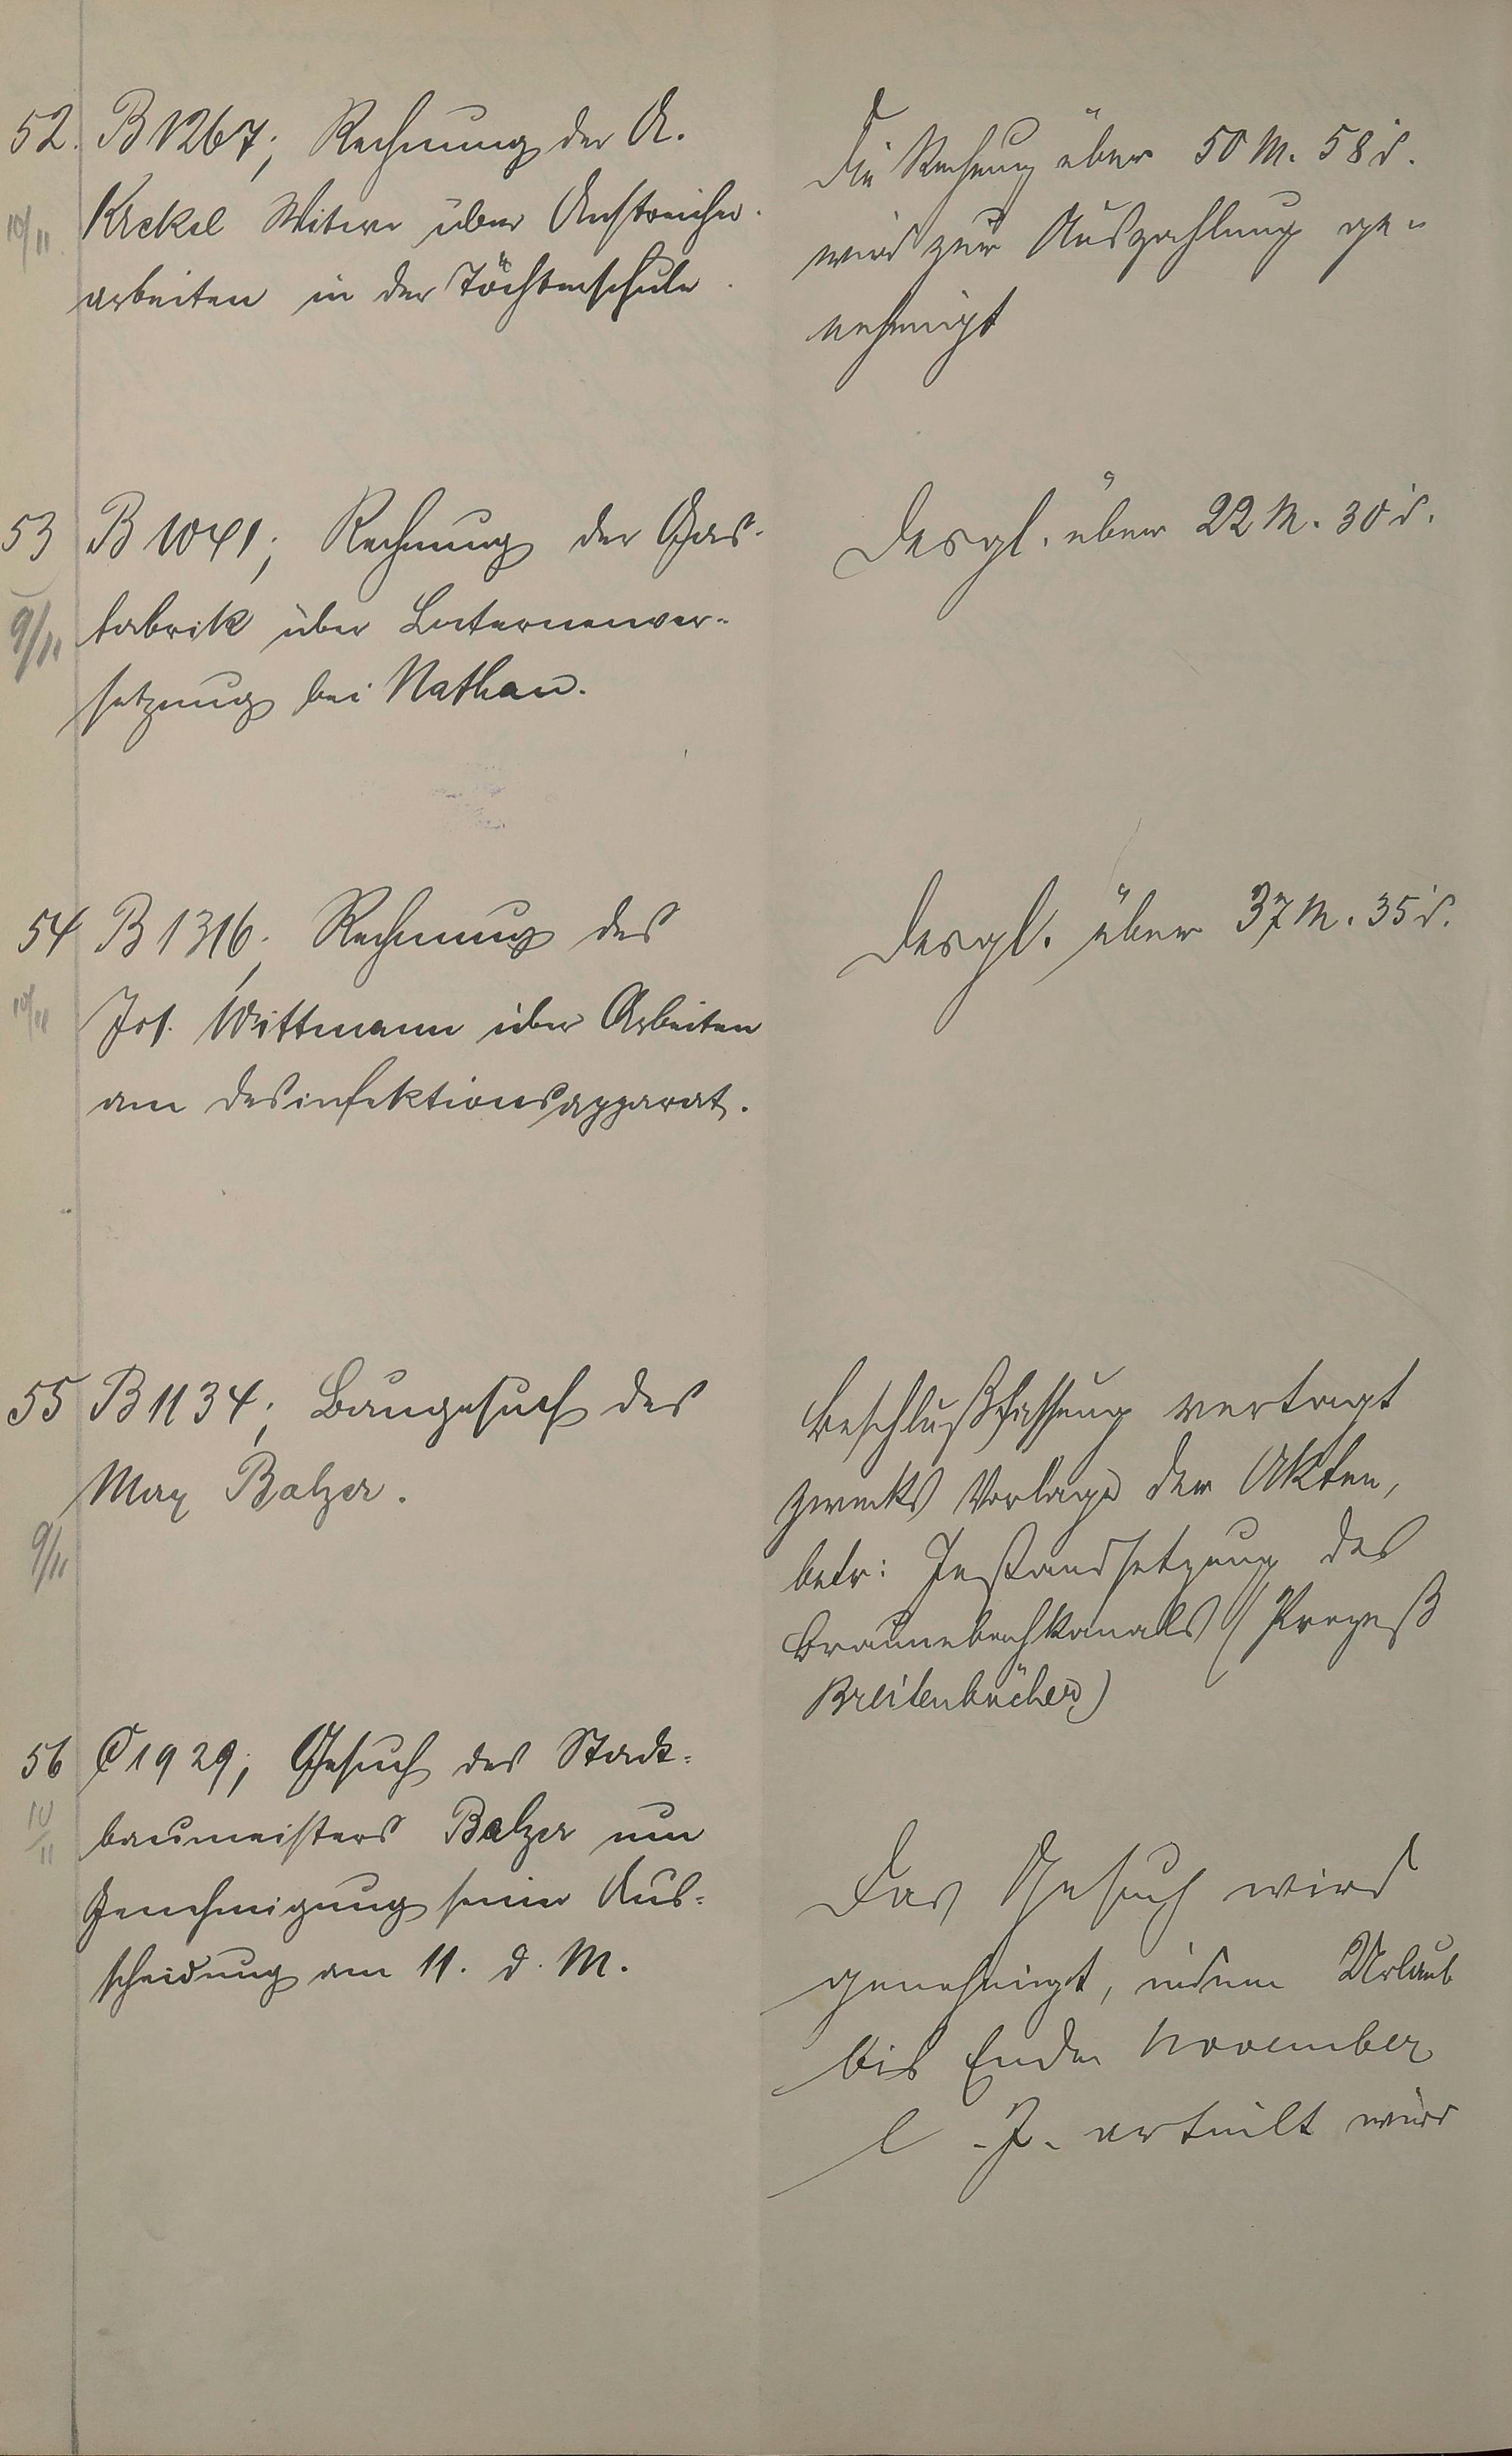 52. B 1267; Rechnung der A.
10/11 Krekel Witwe über Anstreicher-
arbeiten in der Töchterschule.
Die Rechnung über 50 M. 58 d.
wird zur Auszahlung ge-
nehmigt
53 B 1041; Rechnung der Gas-
9/11 fabrik über Laternenver-
setzung bei Nathan.
Desgl. über 22 M. 30 d.
54 B 1316; Rechnung des
10/11 Jos. Wittmann über Arbeiten
am Desinfektionsapparat.
Desgl. über 37 M. 35 d.
55 B 1134; Baugesuch des
Max Balzer.
9/11
Beschlußfassung vertagt
zwecks Vorlage der Akten,
betr: Instandsetzung des
Braunebachkanals (Prozeß
Breitenbücher)
56 C 1929; Gesuch des Stadt-
10/11 baumeisters Balzer um
Genehmigung seiner Aus-
scheidung am 11. d. M.
Das Gesuch wird
genehmigt, indem Urlaub
bis Ende November
l. J. erteilt wird